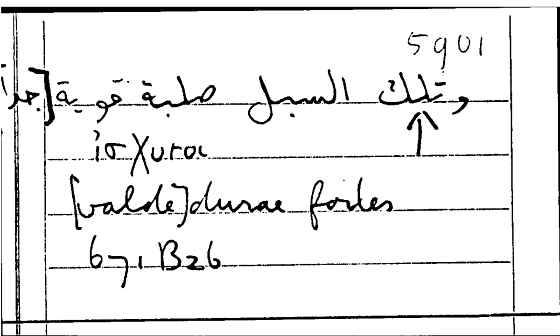 5901
وتلك السبل صلبة قوية [جداً
ἰσχυραι
[valde] durae fortes
671 B26